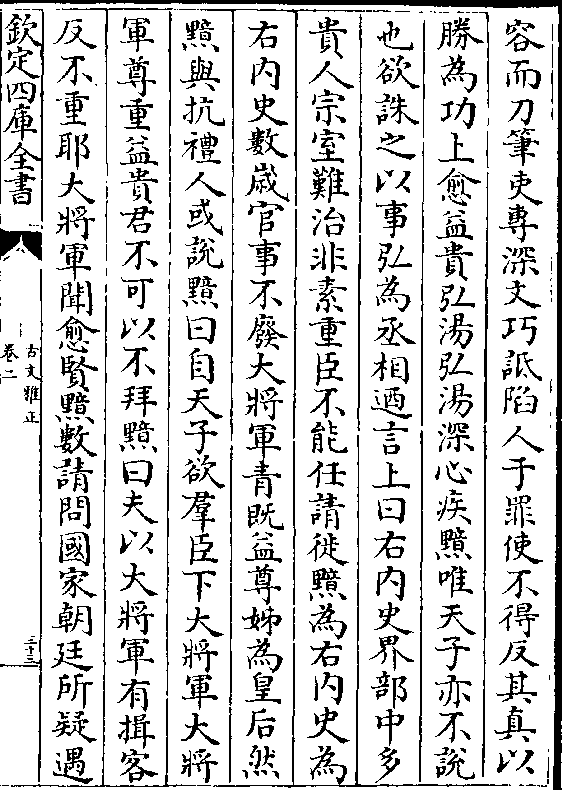 容而刀筆吏專深文巧詆陷人于罪使不得反其真以
勝為功上愈益貴弘湯弘湯深心疾黯唯天子亦不說
也欲誅之以事弘為丞相迺言上曰右内史界部中多
貴人宗室難治非素重臣不能任請徙黯為右内史為
右内史數嵗官事不廢大將軍青既益尊姊為皇后然
黯與抗禮人或說黯曰自天子欲羣臣下大將軍大將
軍尊重益貴君不可以不拜黯曰夫以大將軍有揖客
反不重耶大將軍聞愈賢黯數請問國家朝廷所疑遇
欽定四庫全書
古文雅正
卷二
三十三